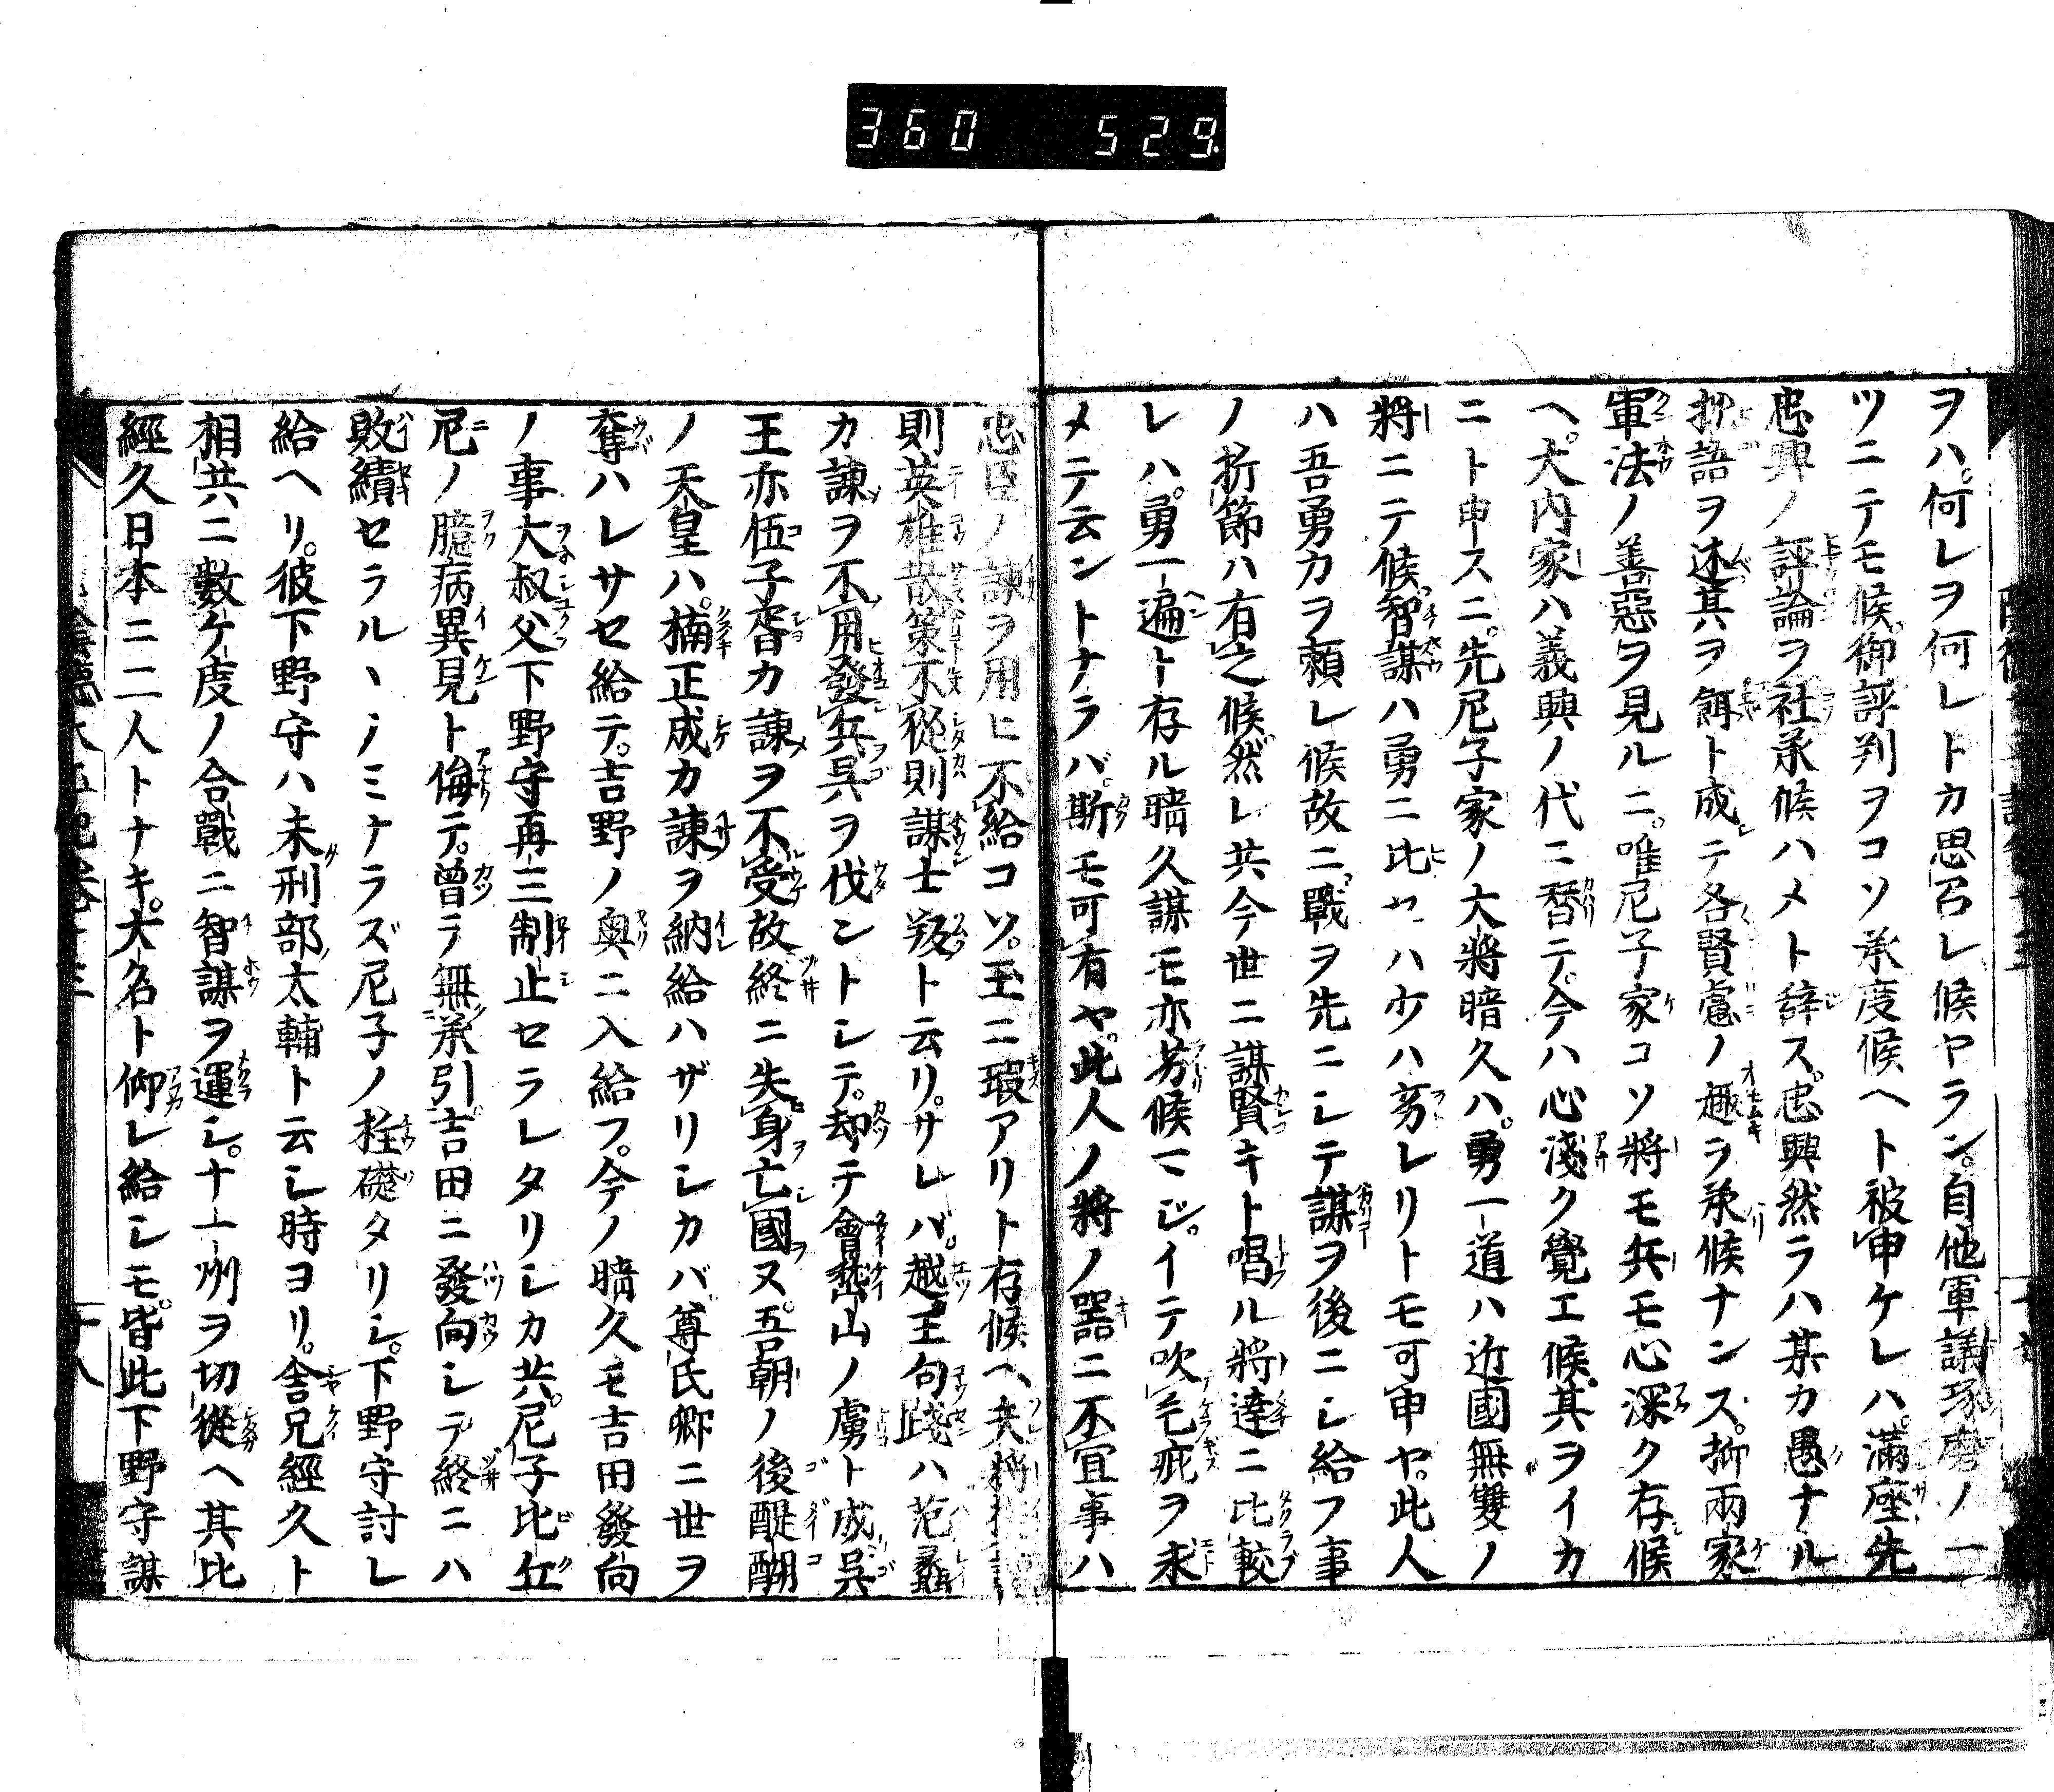 360 529.
ヲハ。何レヲ何レトカ思召レ候ヤラン。自他軍議琢磨ノ一
ツニテモ候。御評判ヲコソ承度候ヘト被申ケレハ。満座先
忠興ノ評論ヲ社承候ハメト辞ス。忠興然ラハ某カ愚ナル
鄙語ヲ述其ヲ餌ト成テ各賢慮ノ趣ヲ承候ナンス。抑兩家
軍法ノ善惡ヲ見ルニ。唯尼子家コソ將モ兵モ心深ク存候
ヘ。大内家ハ義興ノ代ニ替テ。今ハ心淺ク覺エ候。其ヲイカ
ニト申スニ。先尼子家ノ大將晴久ハ。勇一道ハ近國無雙ノ
將ニテ候。智謀ハ勇ニ比セハ少ハ劣レリトモ可申ヤ。此人
ハ吾勇カヲ頼レ候故ニ。戰ヲ先ニシテ謀ヲ後ニシ給フ事
ノ折節ハ有之候。然レ共今世ニ謀賢キト唱ル將達ニ比較
レハ。勇一遍ト存ル晴久謀モ亦劣候マジ。イテ吹毛疵ヲ求
メテ云ントナラバ。斯モ可有ヤ。此人ノ將ノ器ニ不宜事ハ
忠臣ノ諫ヲ用ヒ不給コソ。王ニ瑕アリト存候ヘ、夫將拒諫
則英雄散策不從則謀士叛ト云リ。サレバ。越王句踐ハ范蠡
カ諫ヲ不用發兵呉ヲ伐ントシテ。却テ會嵆山ノ虜ト成呉
王亦伍子胥カ諫ヲ不受故終ニ失身亡國ス。吾朝ノ後醍醐
ノ天皇ハ。楠正成カ諫ヲ納給ハザリシカバ尊氏卿ニ世ヲ
奪ハレサセ給テ。吉野ノ奥ニ入給フ。今ノ晴久モ吉田發向
ノ事大叔父下野守再三制止セラレタリシカ共。尼子比丘
尼ノ臆病異見ト侮テ。曾テ無承引吉田ニ發向シテ終ニハ
敗績セラルヽノミナラズ尼子ノ柱礎タリシ。下野守討レ
給ヘリ。彼下野守ハ未刑部太輔ト云シ時ヨリ。舎兄經久ト
相共ニ數ケ度ノ合戰ニ智謀ヲ運シ。十一州ヲ切從ヘ其比
經久日本ニ二人トナキ。大名ト仰レ給シモ。皆此下野守謀
十八